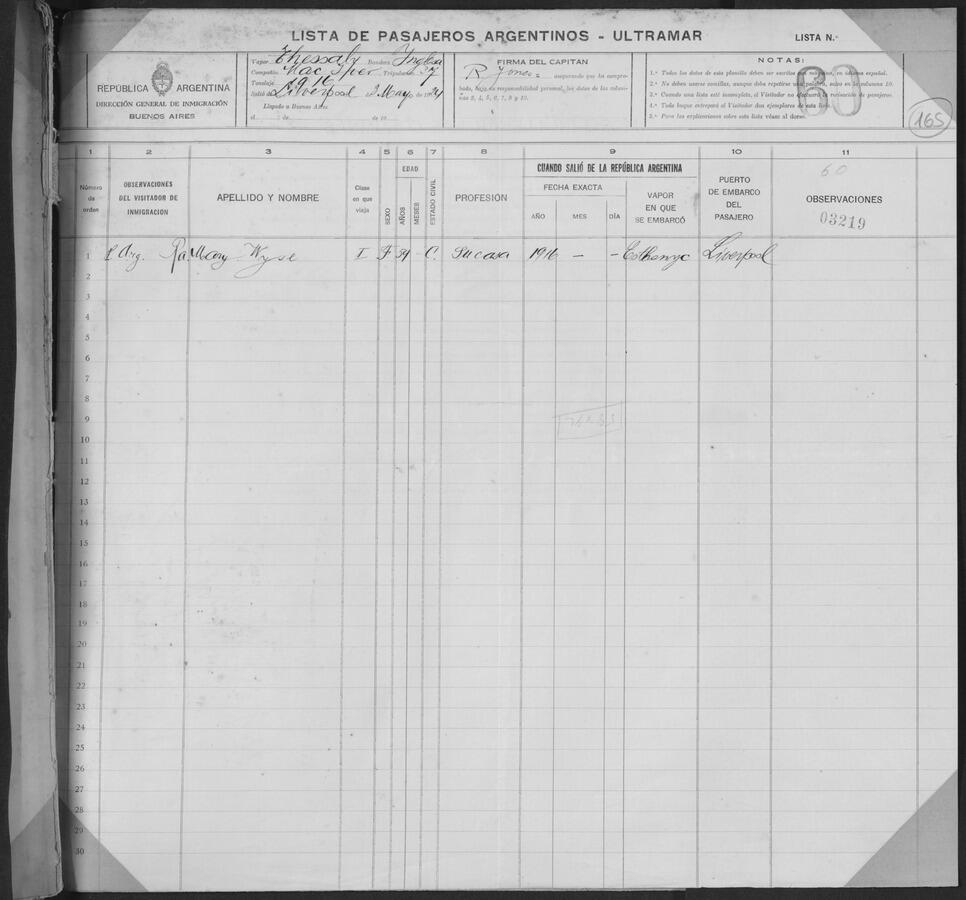 LISTA DE PASAJEROS ARGENTINOS - ULTRAMAR
LISTA N.°
REPÚBLICA ARGENTINA
DIRECCIÓN GENERAL DE INMIGRACIÓN
BUENOS AIRES
Vapor Thessaly Bandera Inglesa
Compañía Mac Iver Tripulantes
Tonelaje
Salió de Liverpool 2 May de 1924
Llegado a Buenos Aires
el de de 19
FIRMA DEL CAPITAN
R Jones asegurando que ha compro-
bado, bajo su responsabilidad personal, los datos de las colum-
nas 3, 4, 5, 6, 7, 8 y 10.
NOTAS:
1.ª Todos los datos de esta planilla deben ser escritos en idioma español.
2.ª No deben usarse comillas, aunque deba repetirse una palabra, salvo en la columna 10.
3.ª Cuando una lista esté incompleta, el Visitador no efectuará la revisación de pasajeros.
4.ª Todo buque entregará al Visitador dos ejemplares de esta lista.
5.ª Para las explicaciones sobre esta lista véase al dorso.
60
165
1 2 3 4 5 6 7 8 9 10 11
Número de orden
OBSERVACIONES DEL VISITADOR DE INMIGRACION
APELLIDO Y NOMBRE
Clase en que viaja
SEXO
EDAD
AÑOS
MESES
ESTADO CIVIL
PROFESIÓN
CUANDO SALIÓ DE LA REPÚBLICA ARGENTINA
FECHA EXACTA
AÑO MES DÍA
VAPOR EN QUE SE EMBARCÓ
PUERTO DE EMBARCO DEL PASAJERO
60
OBSERVACIONES
03219
1 Arg. Mary Wyse I F 34 C. Su casa 1916 — — Liverpool
2
3
4
5
6
7
8
9
10
11
12
13
14
15
16
17
18
19
20
21
22
23
24
25
26
27
28
29
30